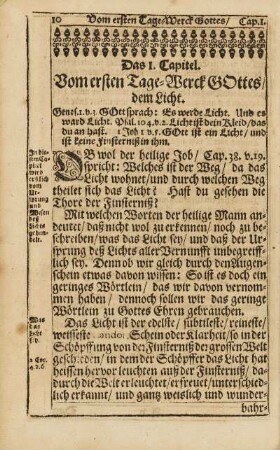 10 Vom ersten Tage-Werck Gottes/ Cap.1.
Das 1. Capitel.
Vom ersten Tage-Werck GOttes/
dem Licht.
Genes.1.v.3 GOtt sprach: Es werde Licht. Und es
ward Licht. Psal.104.v.2. Liecht ist dein Kleid/das
du an hast. 1 Joh 1 v.5. GOtt ist ein Licht/ und
ist keine Finsterniß in ihm.
OB wol der heilige Job/ Cap.38. v.19.
spricht: Welches ist der Weg/ da das
Licht wohnet/und durch welchen Weg
theilet sich das Licht? Hast du gesehen die
Thore der Finsterniß?
Mit welchen Worten der heilige Mann an-
deutet/ daß nicht wol zu erkennen/ noch zu be-
schreiben/ was das Licht sey/ und daß der Ur-
sprung deß Lichts aller Vernunfft unbegreiff-
lich sey. Dennoch wir gleich durch den Augen-
schein etwas davon wissen: So ist es doch ein
geringes Wörtlein/ das wir davon vernom-
men haben/ dennoch sollen wir das geringe
Wörtlein zu Gottes Ehren gebrauchen.
Das Licht ist der edelste/ subtileste/ reineste/
weisseste Schein oder Klarheit/so in der
Schöpffung von der Finsterniß der grossen Welt
geschieden/ in dem der Schöpffer das Licht hat
heissen hervor leuchten auß der Finsterniß/ da-
durch die Welt erleuchtet/ erfreuet/ unterschied-
lich erkannt/ und gantz weislich und wunder-
bahr-
In die-
sem Ca-
pitel
wird
vom
Ur-
sprung
und
Wesen
des
Lichts
gehan-
delt.
Was
das
Licht
sey.
2 Cor.
4.v.6